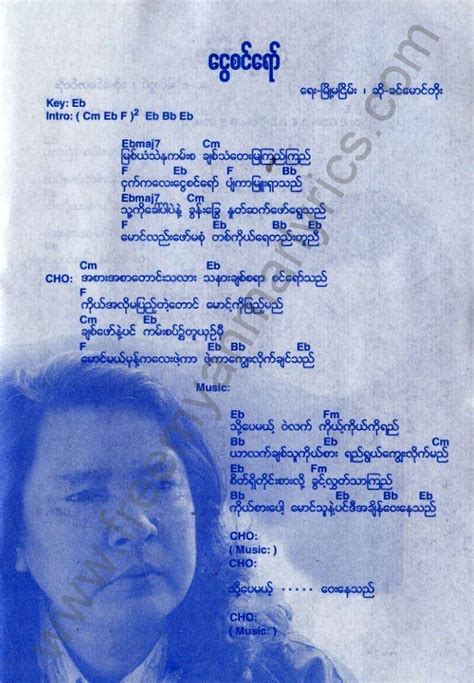 ငွေစင်ရော်
ရေး-မြို့မငြိမ်း ၊ ဆို-ခင်မောင်တိုး
Key: Eb
Intro: ( Cm Eb F )² Eb Bb Eb
Ebmaj7 Cm
မြစ်ယံသဲနကမ်းစ ချစ်သံတေးမြကြည်ကြည်
F Eb F Bb
ငှက်ကလေးငွေစင်ရော် ပျံကာမြူးရှာသည်
Ebmaj7 Cm
သူ့ကိုခေါ်ပါပဲနဲ့ ခွန်းခြွေ နှုတ်ဆက်ဖော်ရွှေသည်
F Eb Bb Eb
မောင်လည်းဖော်မစုံ တစ်ကိုယ်ရေတည်းတူညီ
Cm Eb
CHO: အစားအစာတောင်းသလား သနားချစ်စရာ စင်ရော်သည်
F Cm
ကိုယ်အလိုမပြည့်တဲ့တောင် မောင့်ကိုဖြည့်မည်
Cm Eb
ချစ်ဖော်နဲ့ပင် ကမ်းစပ်၌တူယှဉ်မှီ
F Eb Bb Eb
မောင်မယ်မုန့်ကလေးဖဲ့ကာ ဖဲ့ကာကျွေးလိုက်ချင်သည်
Music:
Eb Fm
သို့ပေမယ့် ဝဲလက် ကိုယ့်ကိုယ်ကိုရည်
Bb Eb Bb Eb Cm
ယာလက်ချစ်သူကိုယ်စား ရည်ရွယ်ကျွေးလိုက်မည်
Eb Fm
စိတ်ရှိတိုင်းစားလို့ ခွင့်လွှတ်သာကြည်
Bb Eb Bb Eb
ကိုယ်စားပေါ့ မောင်သူနဲ့ပင်ဒီအချိန်ဝေးနေသည်
CHO:
( Music: )
CHO:
သို့ပေမယ့် ····· ဝေးနေသည်
CHO:
( Music: )
www.freemyanmarlyrics.com